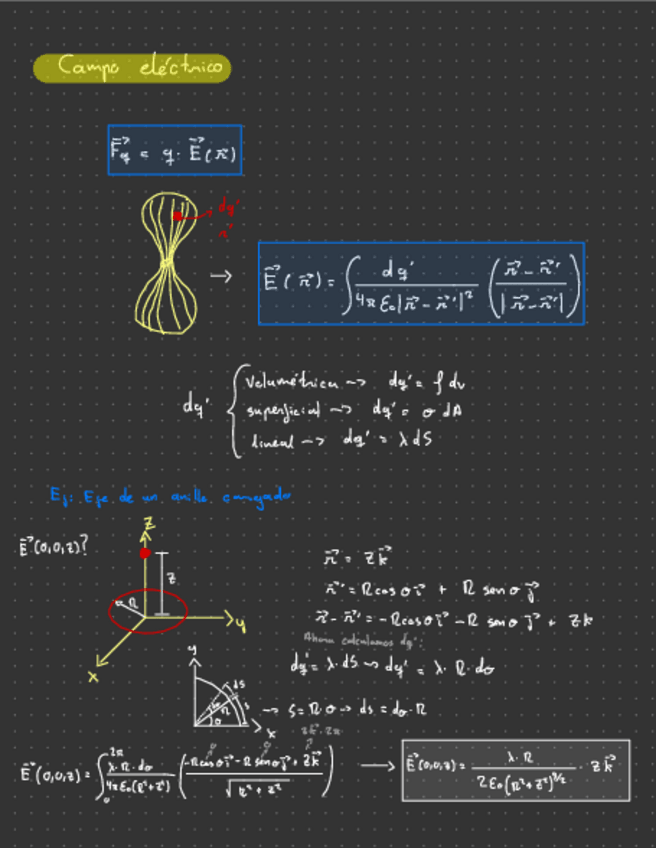 Campo eléctrico
F⃗q = q · E⃗(r⃗)
dq'
r⃗'
→ E⃗(r⃗) = ∫ dq' / 4π ε₀ |r⃗ - r⃗'|² ( r⃗ - r⃗' / |r⃗ - r⃗'| )
dq' { volumétrica → dq' = ρ dv
superficial → dq' = σ dA
lineal → dq' = λ dS
Ej: Eje de un anillo cargado
E⃗(0,0,z)?
z
z
R
y
x
r⃗ = z k⃗
r⃗' = R cos θ i⃗ + R sen θ j⃗
r⃗ - r⃗' = -R cos θ i⃗ - R sen θ j⃗ + z k⃗
Ahora calculamos dq':
dq' = λ · dS → dq' = λ · R · dθ
y
ds
s
R
θ
x
→ S = R · θ → ds = dθ · R
zk⃗ · 2π
0 0
E⃗(0,0,z) = ∫₀^2π λ · R · dθ / 4π ε₀ (R² + z²) ( -R cos θ i⃗ - R sen θ j⃗ + z k⃗ / √R² + z² ) → E⃗(0,0,z) = λ · R / 2 ε₀ (R² + z²)^3/2 · z k⃗